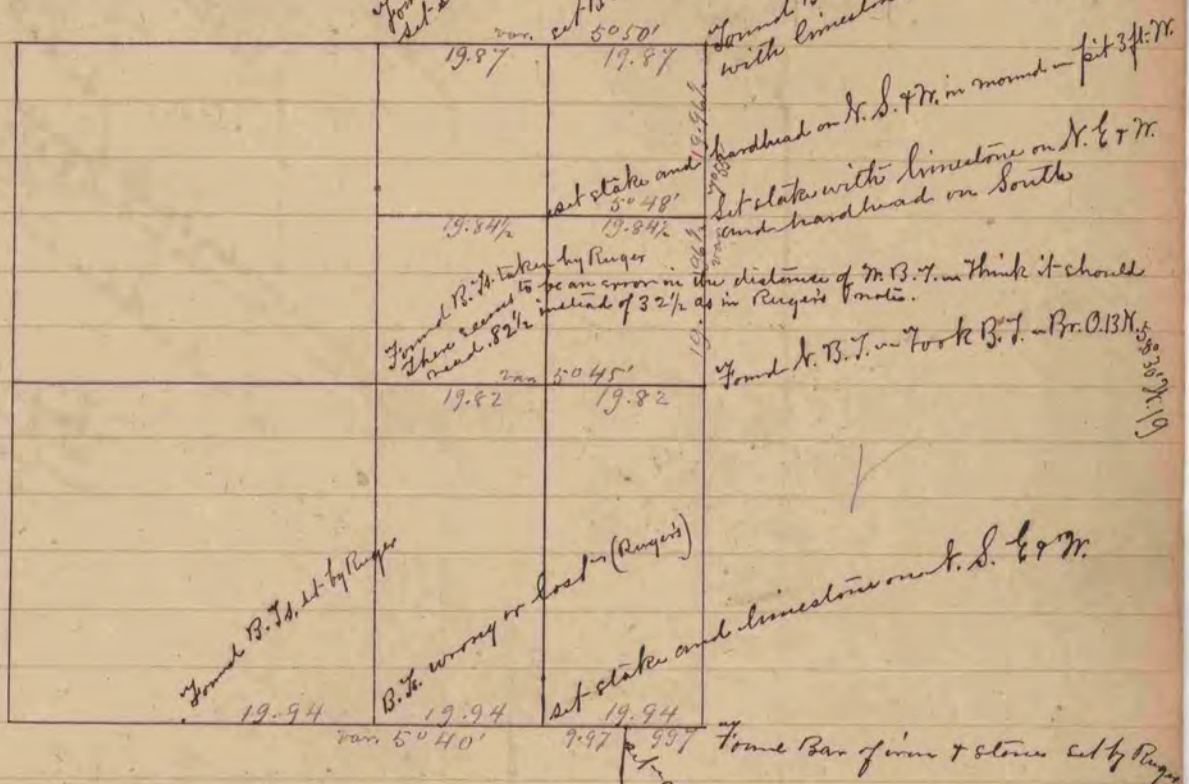 set
van. set B
5° 50'
19.87
19.87
Found B
with limestone
19.96½
set stake and hardhead on N. S. & W. in mound – pit 3 ft. W.
5° 48'
19.84½
19.84½
Set stake with limestone on N. E & W.
and hardhead on South
19.96½
van
Found B. Ts. taken by Ruger
There seems to be an error in the distance of W. B. T. – Think it should
read .82½ instead of 32½ as in Ruger's notes.
van 5° 45'
19.82
19.82
Found N. B. T. – Took B. T. – Br. O. 13 N. 58° 30' W. 19
Found B. Ts. set by Ruger
B. Ts. wrong or lost – (Ruger's)
set stake and limestone on N. S. E & W.
19.94
19.94
19.94
van 5° 40'
9.97
997
Found Bar of iron & stones set by Ruger